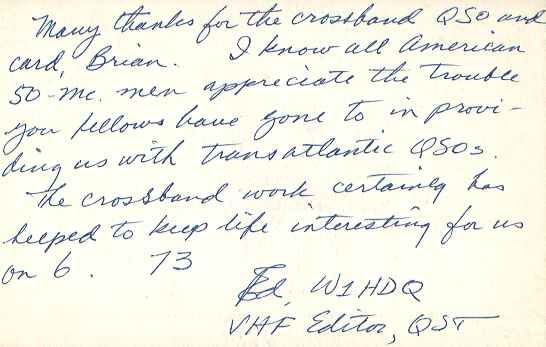 Many thanks for the crossband QSO and
card, Brian. I know all American
50-Mc. men appreciate the trouble
you fellows have gone to in provi-
ding us with transatlantic QSOs.
The crossband work certainly has
helped to keep life interesting for us
on 6. 73
Ed, W1HDQ
VHF Editor, QST